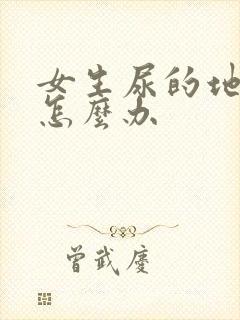 女生尿的地
怎麼办
曾武慶